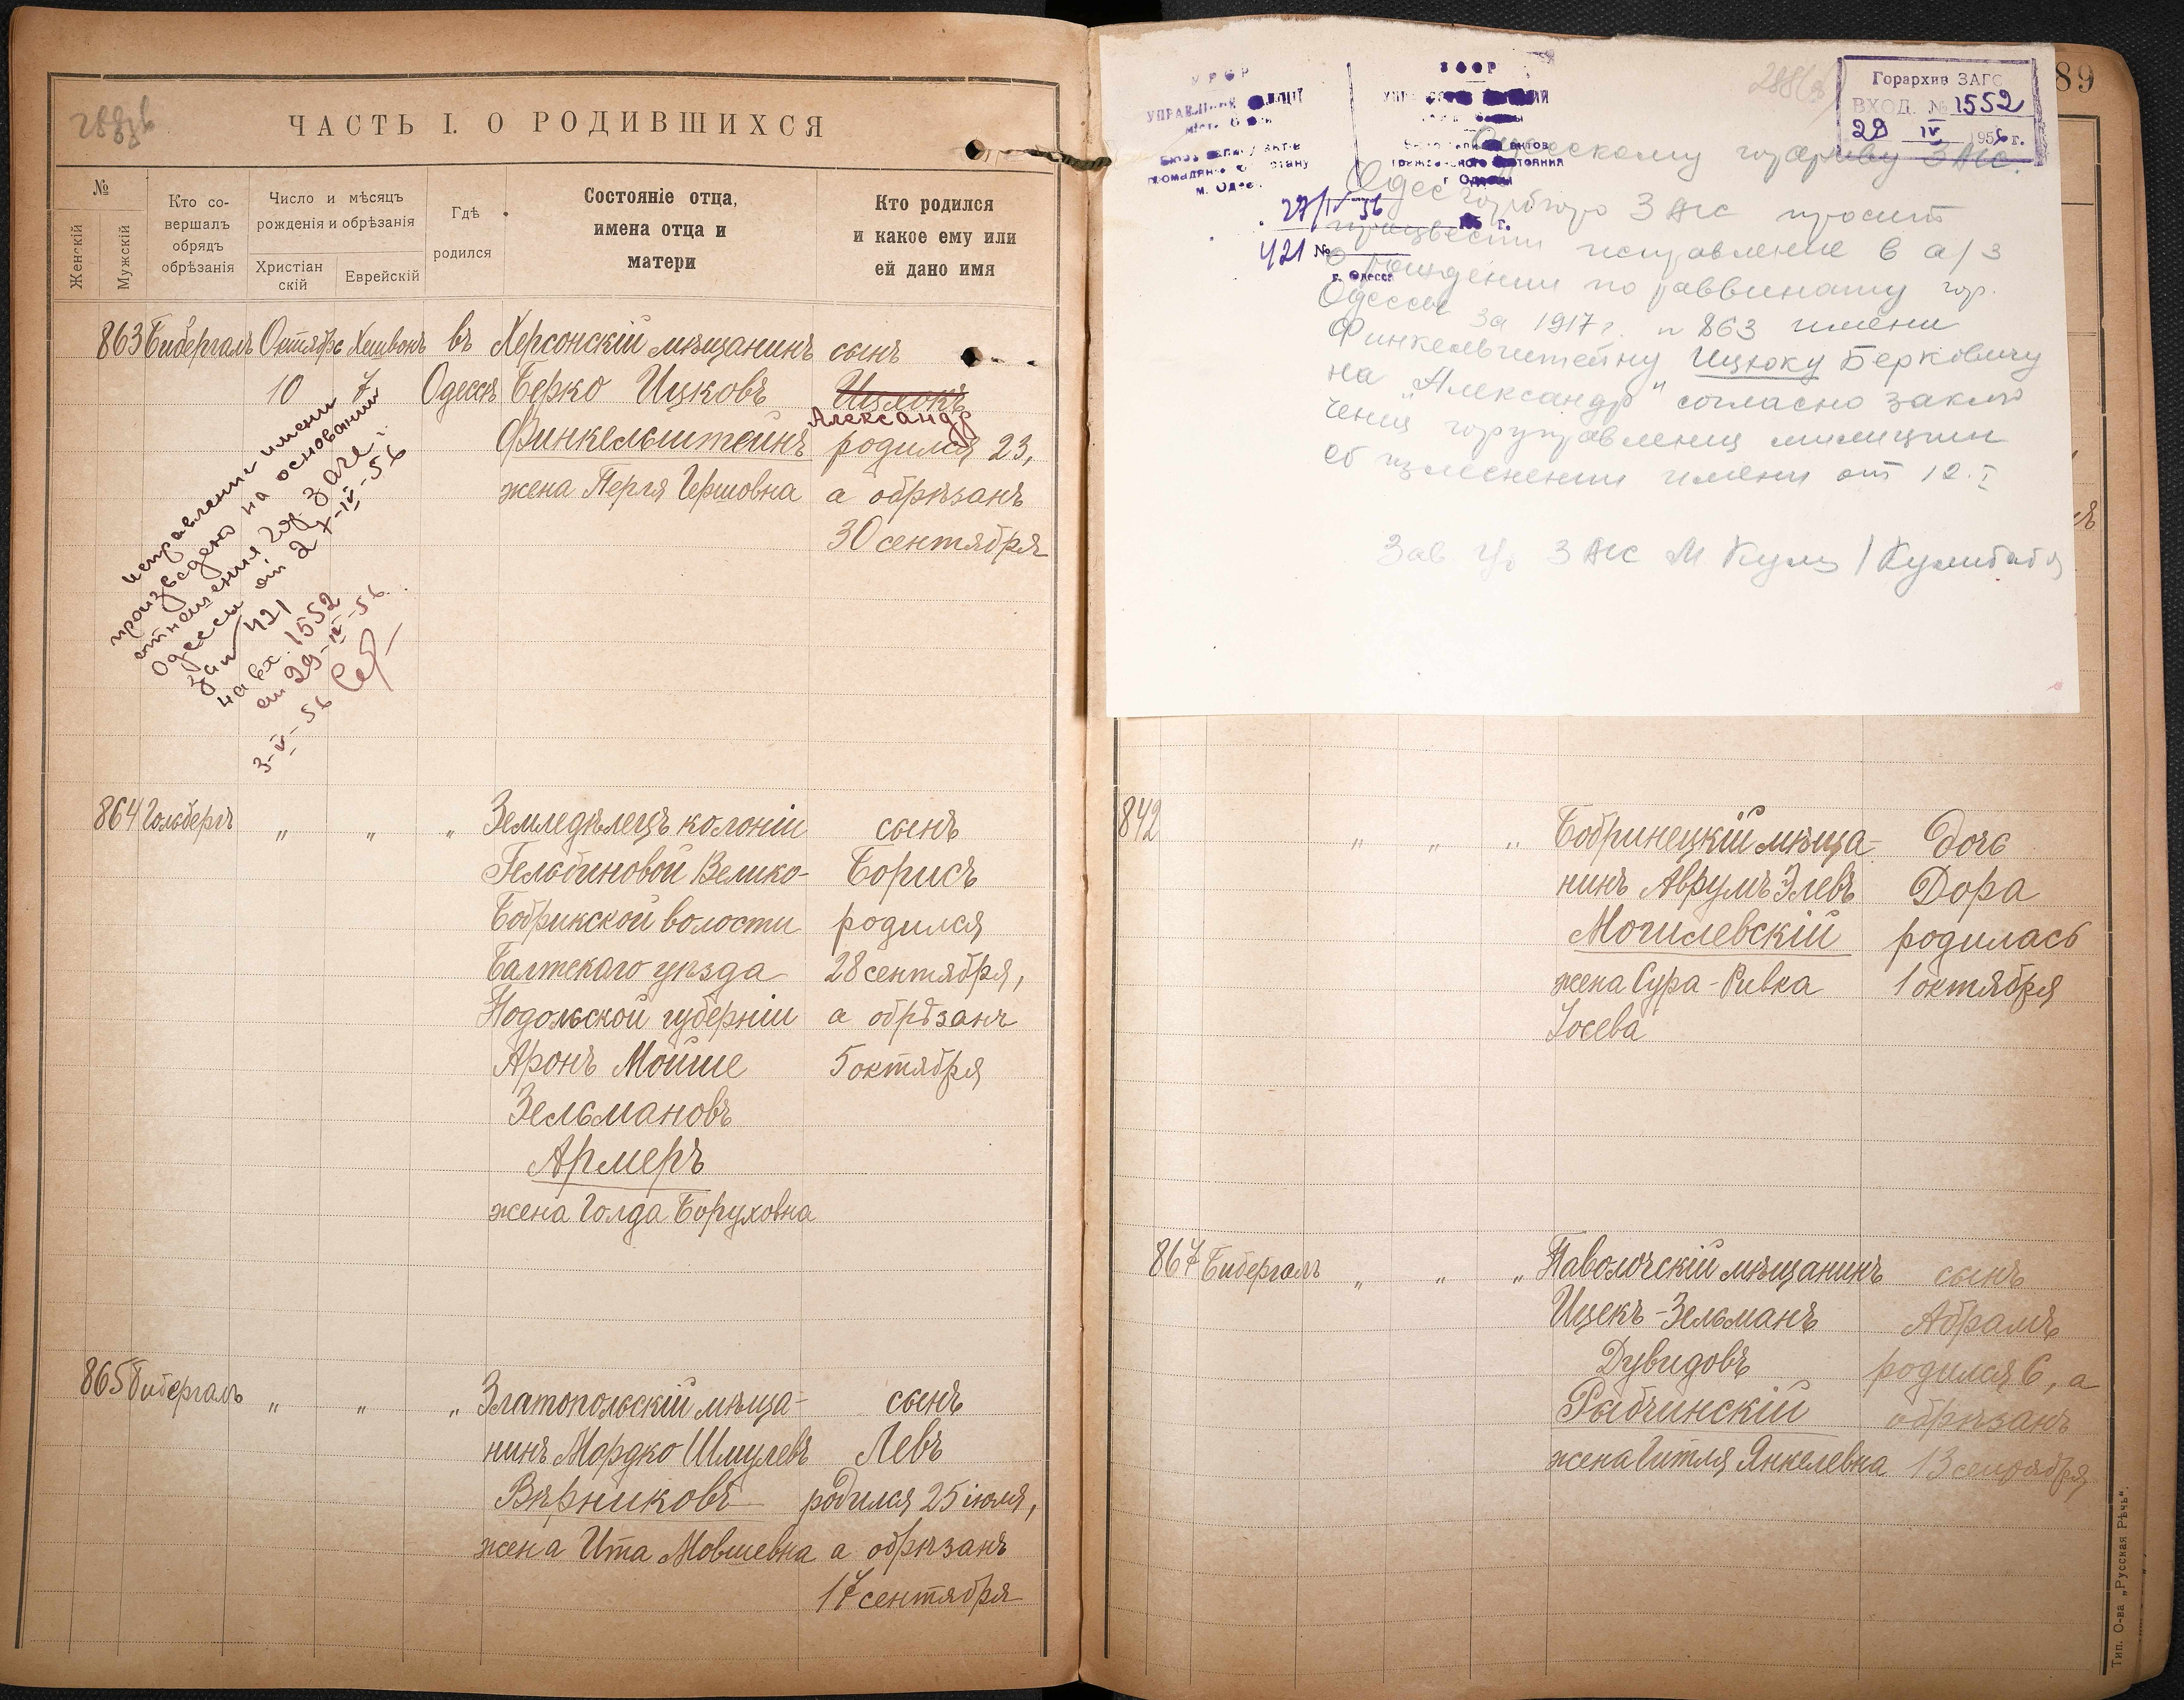 ЧАСТЬ I. О РОДИВШИХСЯ
№
Женскій
Мужскій
Кто со-
вершалъ
обрядъ
обрѣзанія
Число и мѣсяцъ
рожденія и обрѣзанія
Христіан
скій
Еврейскій
Гдѣ
родился
Состояніе отца,
имена отца и
матери
Кто родился
и какое ему или
ей дано имя
863 Бибергалъ Октябрь Хешвонъ въ Херсонскій мѣщанинъ сынъ
10 7 Одессѣ Берко Ицковъ Ицхокъ
Александр
Финкельштейнъ родился 23,
жена Перля Гершовна а обрѣзанъ
30 сентября
исправлении имени
произведено на основании
отношения гор. загс
Одессы от 27-IV-56
за № 421
на вх. 1552
от 29-IV-56
3-V-56
864 Гольбергъ " " " Земледѣлецъ колоніи сынъ
Гельбиновой Велико- Борисъ
Бобрикской волости родился
Балтскаго уѣзда 28 сентября,
Подольской губерніи а обрѣзанъ
Аронъ Мойше 5 октября
Зельмановъ
Армеръ
жена Голда Боруховна
865 Бибергалъ " " " Златопольскій мѣща- сынъ
нинъ Мордко Шмулевъ Левъ
Вѣрниковъ родился 25 іюля,
жена Ита Мовшевна а обрѣзанъ
17 сентября
89
Горархив ЗАГС
ВХОД. № 1552
29 IV 1956 г.
УПРАВЛ
м. Одес
27/IV 56 г.
421 №
г. Одесса
Одесскому горархиву ЗАГС.
Одес горбюро ЗАГС просит
произвести исправление в а/з
о рождении по раввинату гор.
Одессы за 1917 г. № 863 имени
Финкельштейну Ицхоку Берковичу
на „Александр" согласно заклю
чения горуправления милиции
об изменении имени от 12.I
Зав ЗАГС
842 " " " Бобринецкій мѣща- Дочь
нинъ Аврумъ Элевъ Дора
Могилевскій родилась
жена Сура-Ривка 1 октября
Іосева
867 Бибергалъ " " " Паволочскій мѣщанинъ сынъ
Ицекъ-Зельманъ Абрамъ
Дувидовъ родился 6, а
Рыбчинскій обрѣзанъ
жена Гитля Янкелевна 13 сентября
Тип. О-ва „Русская Рѣчь".